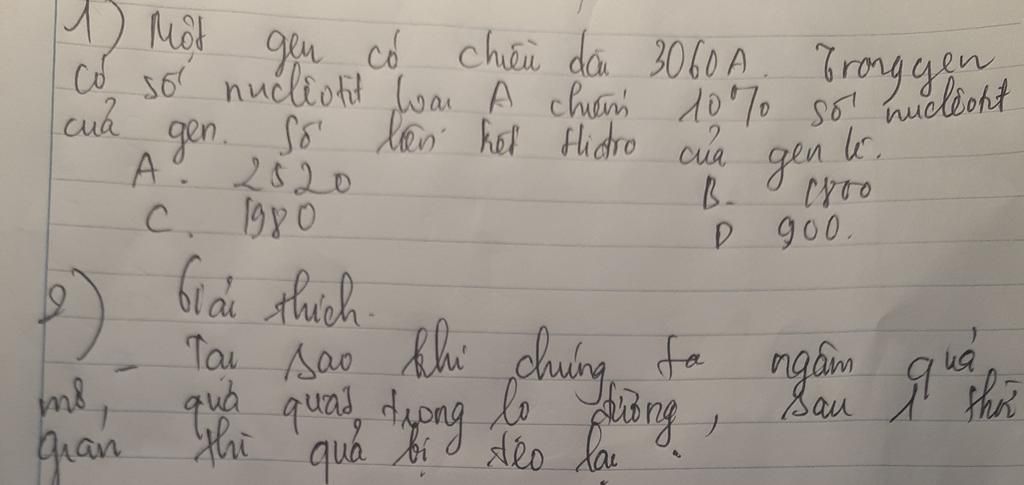 1) Một gen có chiều dài 3060A. Trong gen
có số nuclêôtit loại A chiếm 10% số nuclêôtit
của gen. Số liên kết Hidro của gen là.
A. 2520 B. 1800
C. 1980 D 900.
2) Giải thích.
- Tại sao khi chúng ta ngâm quả
mơ, quả quất trong lo đường, sau 1 thời
gian thì quả bị teo lại.